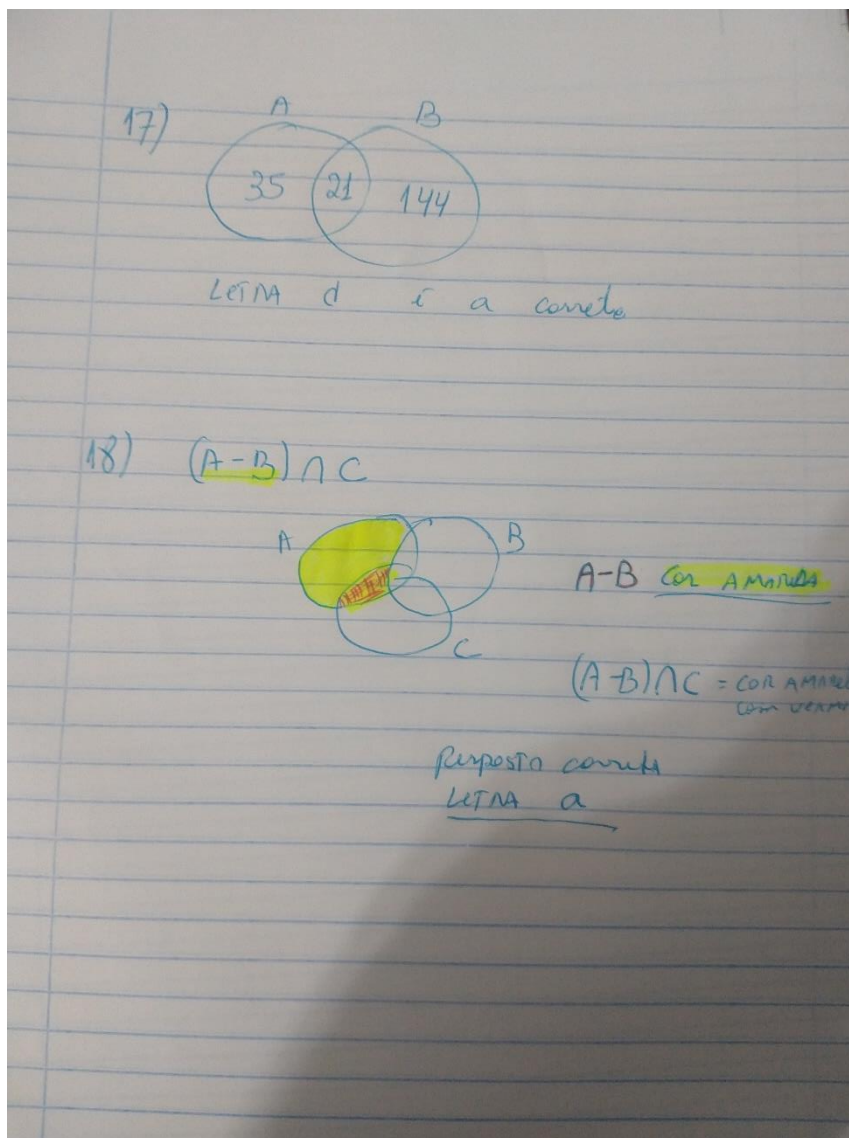 17)
A B
35 21 144
LETRA d é a correta
18) (A-B) ∩ C
A B
C
A-B COR AMARELA
(A-B)∩C = COR AMAREL
COM VERM
Resposta correta
LETRA a